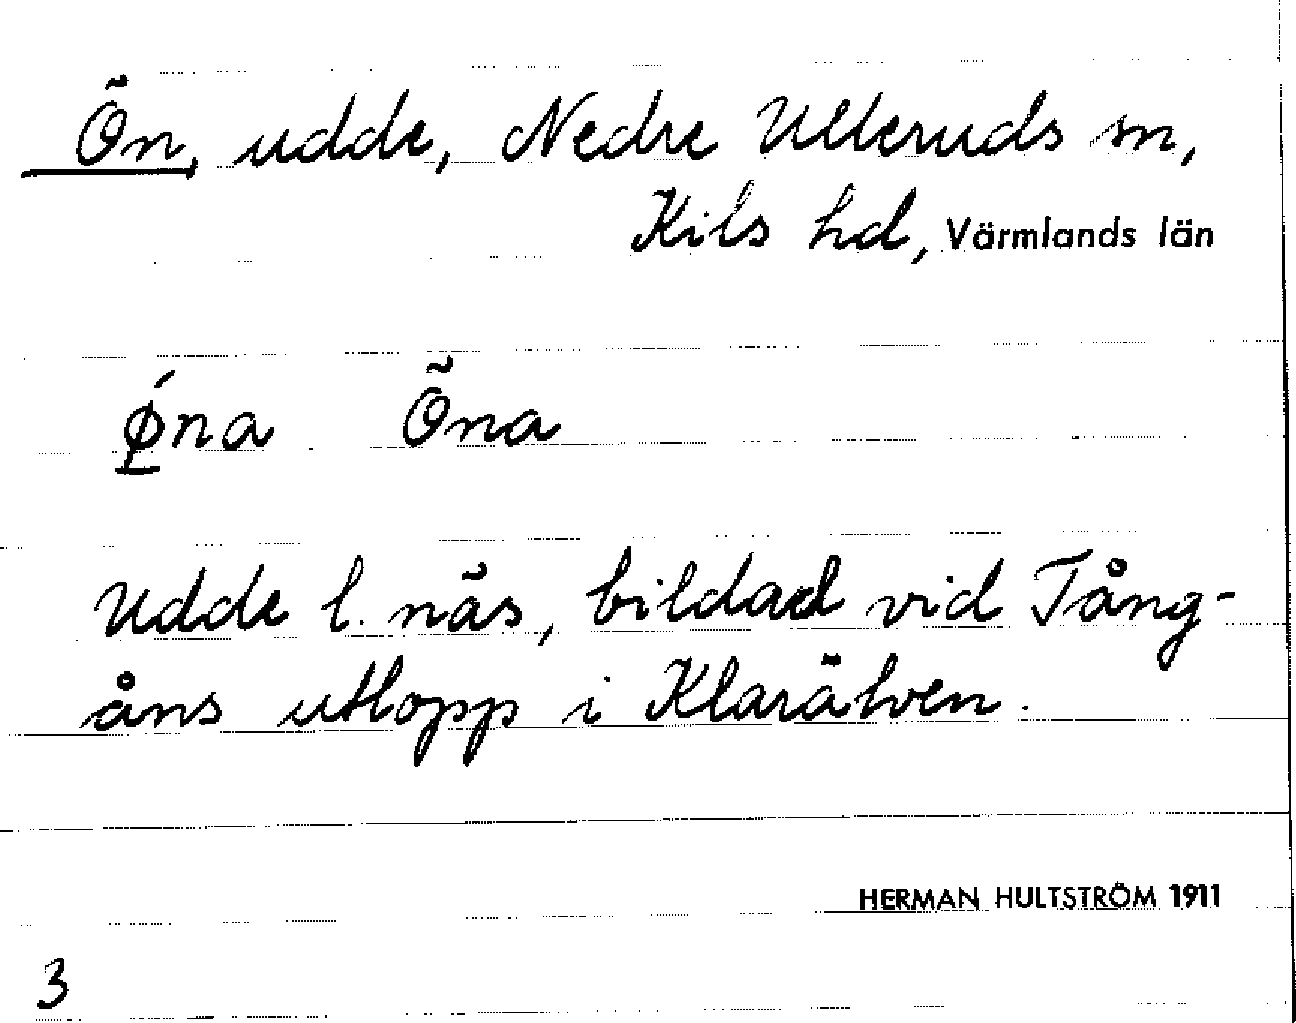 Ön, udde, Nedre Ulleruds sn,
Kils hd, Värmlands län
ǿ̱na Öna
Udde l. näs, bildad vid Tång-
åns utlopp i Klarälven.
HERMAN HULTSTRÖM 1911
3